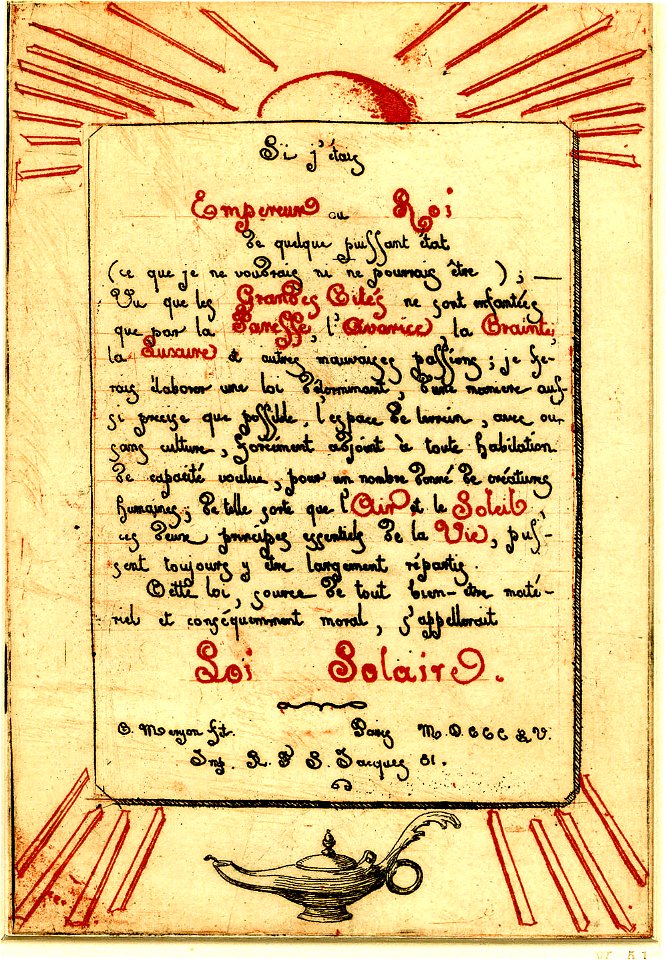 Si j'étais
Empereur ou Roi
de quelque puissant état
(ce que je ne voudrais ni ne pourrais être) ; —
Vu que les Grandes Cités ne sont enfantées
que par la Paresse, l'Avarice, la Crainte,
la Luxure et autres mauvaises passions ; je se-
rais élaborer une loi déterminant, d'une manière aus-
si précise que possible, l'espace de terrein, avec ou
sans culture, forcément adjoint à toute habitation
de capacité voulue, pour un nombre donné de créatures
humaines ; de telle sorte que l'Air et le Soleil,
ces deux principes essentiels de la Vie, puis-
sent toujours y être largement répartis.
Cette loi, source de tout bien-être maté-
riel et conséquemment moral, s'appellerait
Loi Solaire.
C. Meryon fit. Paris M.D.CCC.LV.
Imp. R. N. S. Jacques 81.